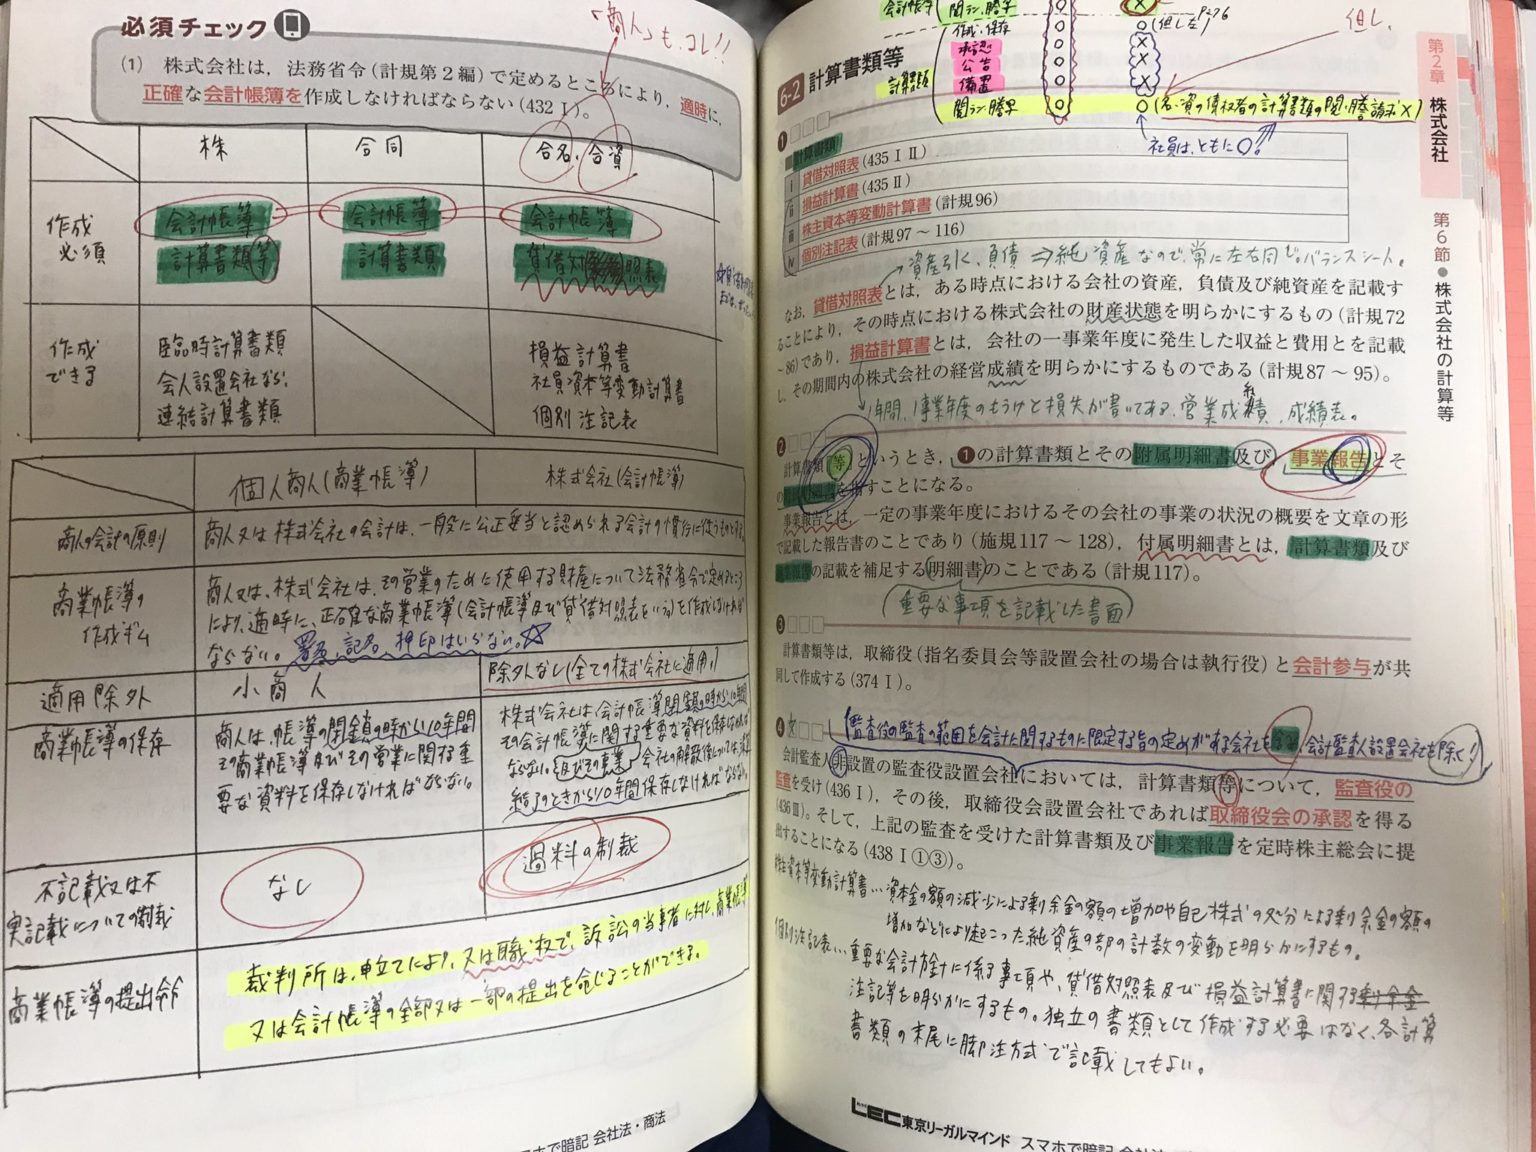 必須チェック
「商人」も、コレ!!
(1) 株式会社は，法務省令（計規第２編）で定めるところにより，適時に，
正確な会計帳簿を作成しなければならない（432Ⅰ）。
株
合同
合名、合資
作成
必須
会計帳簿
会計帳簿
会計帳簿
計算書類等
計算書類
貸借対照表
作成
できる
臨時計算書類
会人設置会社なら、
連結計算書類
損益計算書
社員資本等変動計算書
個別注記表
個人商人(商業帳簿)
株式会社(会計帳簿)
商人の会計の原則
商人又は株式会社の会計は、一般に公正妥当と認められる会計の慣行に従うものとする。
商業帳簿の
作成ギム
商人又は、株式会社は、その営業のために使用する財産について法務省令で定めるところ
により、適時に、正確な商業帳簿(会計帳簿及び貸借対照表をいう)を作成しなければ
ならない。署名、記名、押印はいらない。☆
適用除外
小商人
除外なし(全ての株式会社に適用!)
商業帳簿の保存
商人は、帳簿の閉鎖の時から10年間
その商業帳簿及びその営業に関する重
要な資料を保存しなければならない。
株式会社は会計帳簿閉鎖の時から10年間
その会計帳簿に関する重要な資料を保存しなければ
ならない。及びその事業 会社の解散後については、
結了のときから10年間保存しなければならない。
不記載又は不
実記載についての制裁
なし
過料の制裁
商業帳簿の提出命令
裁判所は、申立てにより、又は職权で、訴訟の当事者に対し、商業帳簿
又は会計帳簿の全部又は一部の提出を命じることができる。
スマホで暗記 会社法・商法
会計帳簿
閲ラン、謄写
作成、保存
○
○(但し左)P276
但し、
承認
公告
備置
計算書類
閲ラン、謄写
○
○(名・資の債权者の計算書類の閲・謄請求×)
社員は、ともに○。
6-2 計算書類等
第２章 株式会社
第６節●株式会社の計算等
❶□□□
計算書類
ⅰ 貸借対照表（435ⅠⅡ）
ⅱ 損益計算書（435Ⅱ）
ⅲ 株主資本等変動計算書（計規96）
ⅳ 個別注記表（計規97～116）
資産引く、負債⇒純資産なので、常に左右同じ。バランスシート。
なお，貸借対照表とは，ある時点における会社の資産，負債及び純資産を記載す
ることにより，その時点における株式会社の財産状態を明らかにするもの（計規72
～86）であり，損益計算書とは，会社の一事業年度に発生した収益と費用とを記載
し，その期間内の株式会社の経営成績を明らかにするものである（計規87～95）。
1年間、1事業年度のもうけと損失が書いてある、営業成績、成績表。
❷□□□
計算書類「等」というとき，❶の計算書類とその附属明細書及び，事業報告とそ
の附属明細書を指すことになる。
事業報告とは，一定の事業年度におけるその会社の事業の状況の概要を文章の形
で記載した報告書のことであり（施規117～128），付属明細書とは，計算書類及び
事業報告の記載を補足する明細書のことである（計規117）。
(重要な事項を記載した書面)
❸□□□
計算書類等は，取締役（指名委員会等設置会社の場合は執行役）と会計参与が共
同して作成する（374Ⅰ）。
❹
(監査役の監査の範囲を会計に関するものに限定する旨の定めがある会社を含み、会計監査人設置会社を除く!)
会計監査人非設置の監査役設置会社においては，計算書類等について，監査役の
監査を受け（436Ⅰ），その後，取締役会設置会社であれば取締役会の承認を得る
（436Ⅲ）。そして，上記の監査を受けた計算書類及び事業報告を定時株主総会に提
出することになる（438Ⅰ①③）。
株主資本等変動計算書…資本金の額の減少による剰余金の額の増加や自己株式の処分による剰余金の額の
増加などにより起こった純資産の部の計数の変動を明らかにするもの。
個別注記表…重要な会計方針に係る事項や、貸借対照表及び損益計算書に関する剰余金
注記等を明らかにするもの。独立の書類として作成する必要はなく、各計算
書類の末尾に脚注方式で記載してもよい。
LEC東京リーガルマインド スマホで暗記